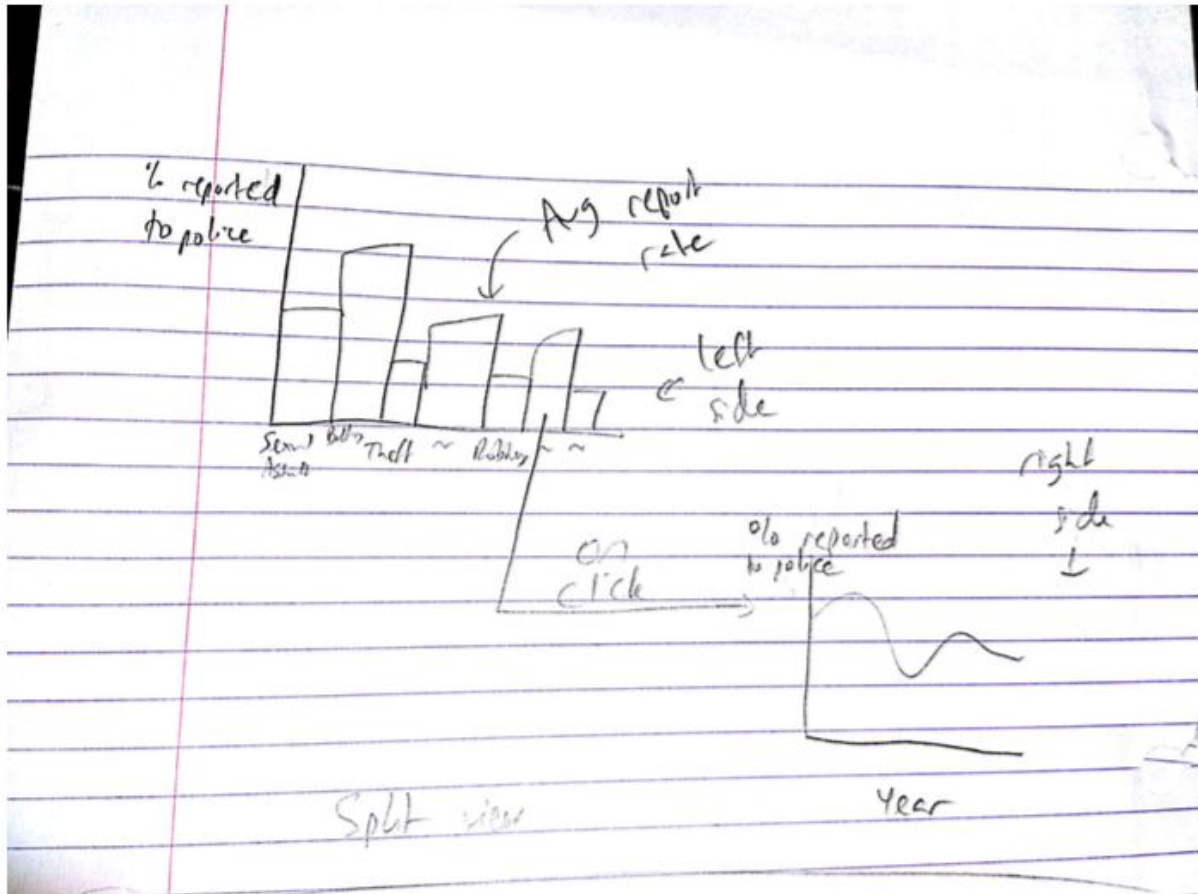 % reported
to police
Avg report
rate
left
side
Sexual
Assault
Theft ~ Robbery ~ ~
right
side
on
click
% reported
to police
Year
Split view